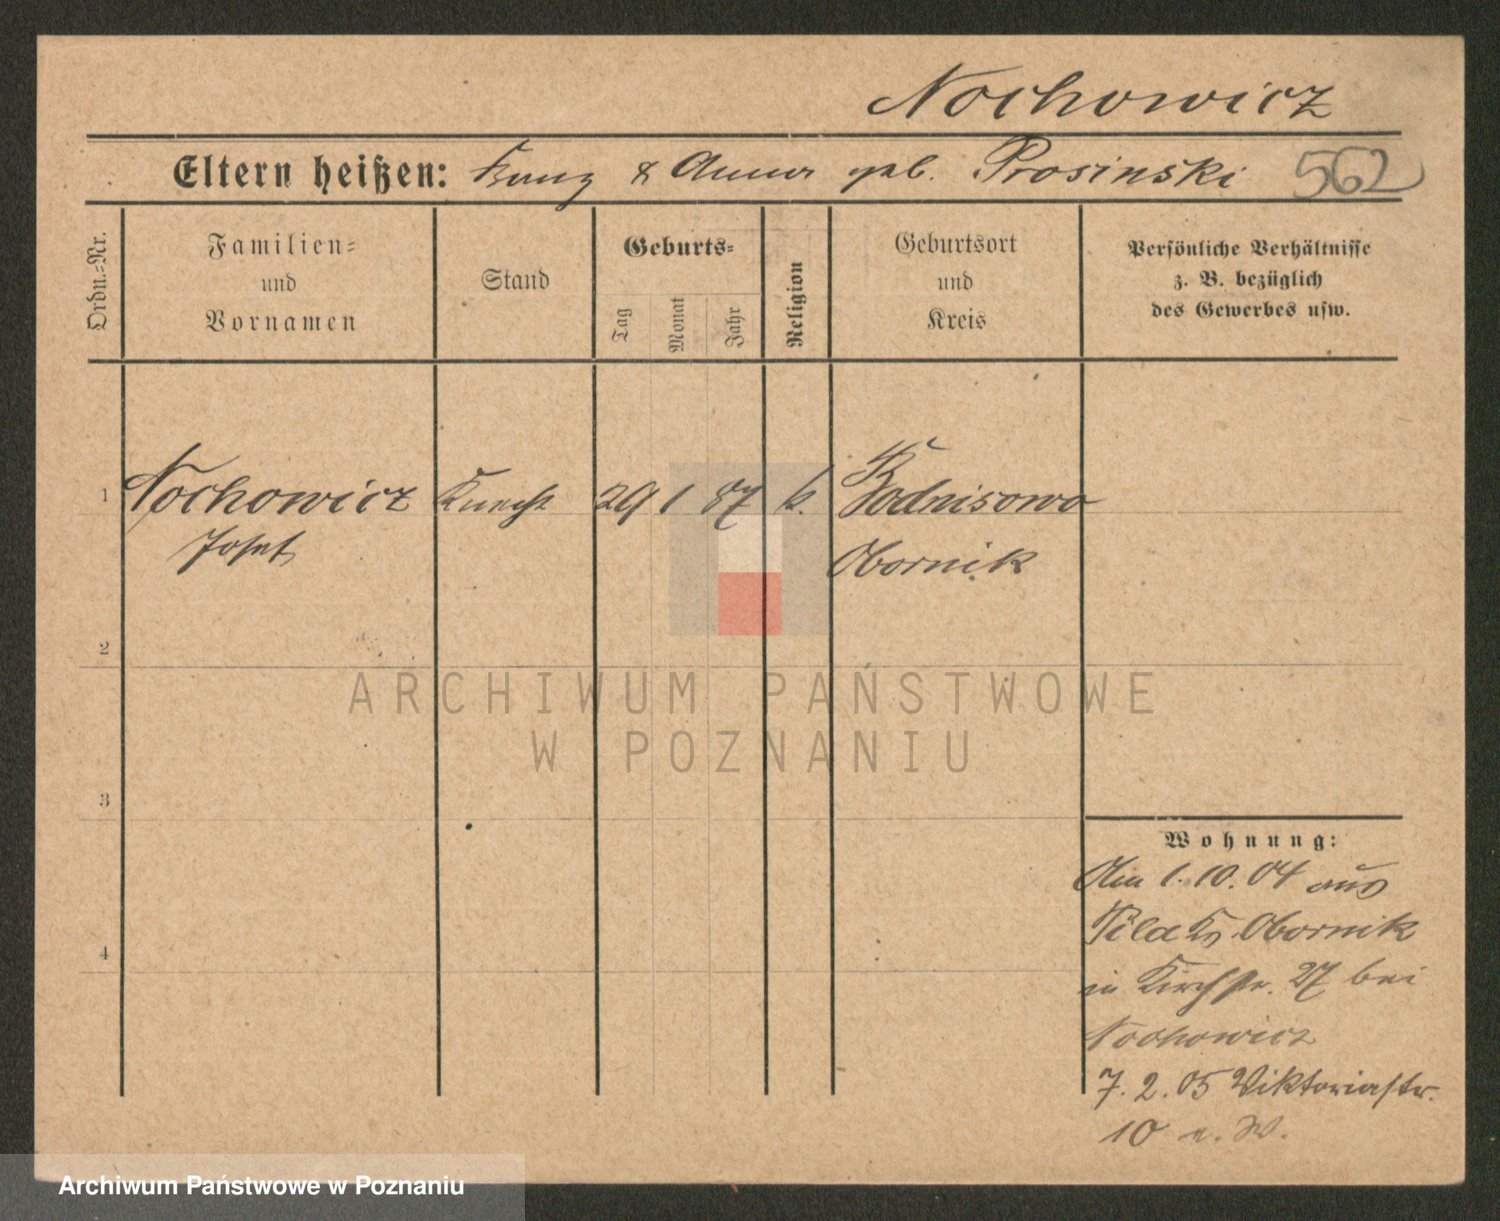 Nochowicz
Eltern heißen: Franz & Anna geb. Prosinski 562
Ordn.-Nr.
Familien- und Vornamen
Stand
Geburts-
Tag
Monat
Jahr
Religion
Geburtsort und Kreis
Persönliche Verhältnisse
z. B. bezüglich
des Gewerbes usw.
1 Nochowicz Knecht 29 1 87 k. Bodnisowo
Josef Obornik
2
ARCHIWUM PAŃSTWOWE
W POZNANIU
3
Wohnung:
Am 1.10.04 aus
Pila Kr. Obornik
4
in Kirchstr. 27 bei
Nochowicz
7.2.05 Viktoriastr.
10 W.
Archiwum Państwowe w Poznaniu